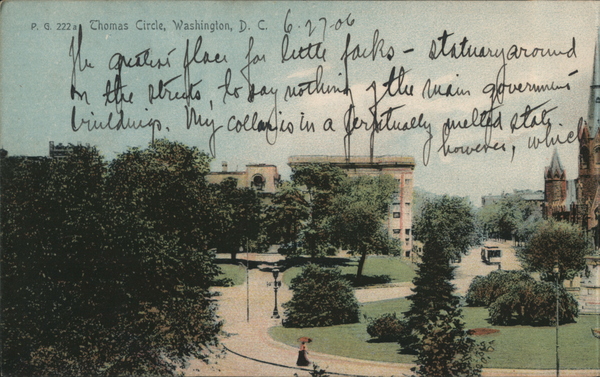 P. G. 222a Thomas Circle, Washington, D. C. 6-27-06
The greatest place for little parks – statuary around
on the streets, to say nothing of the main government
buildings. My collar is in a perpetually melted state.
however, which